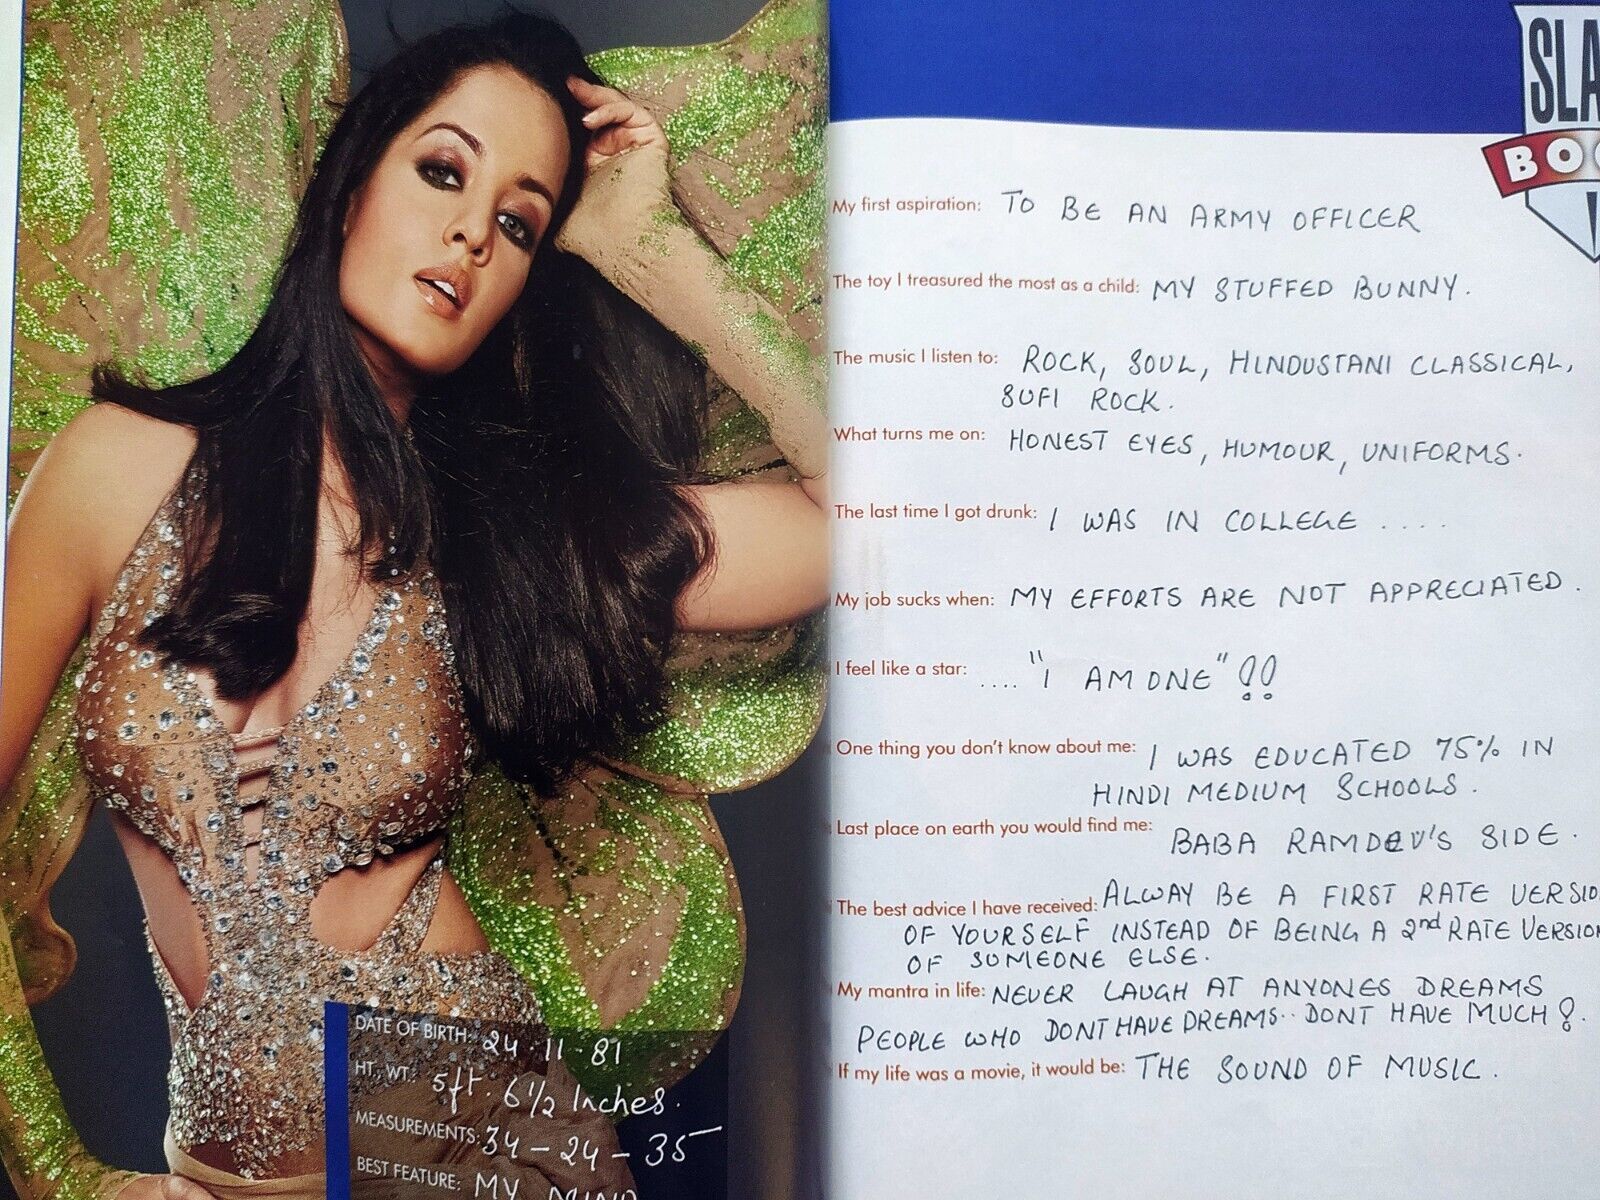 DATE OF BIRTH: 24·11·81
HT., WT.: 5ft. 6 1/2 Inches.
MEASUREMENTS: 34 – 24 – 35
BEST FEATURE: MY MIND
SLA
BOO
My first aspiration: TO BE AN ARMY OFFICER
The toy I treasured the most as a child: MY STUFFED BUNNY.
The music I listen to: ROCK, SOUL, HINDUSTANI CLASSICAL,
SUFI ROCK.
What turns me on: HONEST EYES, HUMOUR, UNIFORMS.
The last time I got drunk: I WAS IN COLLEGE ....
My job sucks when: MY EFFORTS ARE NOT APPRECIATED.
I feel like a star: .... "I AM ONE" !!
One thing you don't know about me: I WAS EDUCATED 75% IN
HINDI MEDIUM SCHOOLS.
Last place on earth you would find me: BABA RAMDEV'S SIDE.
The best advice I have received: ALWAY BE A FIRST RATE VERSIO
OF YOURSELF INSTEAD OF BEING A 2nd RATE VERSION
OF SOMEONE ELSE.
My mantra in life: NEVER LAUGH AT ANYONES DREAMS
PEOPLE WHO DONT HAVE DREAMS.. DONT HAVE MUCH!.
If my life was a movie, it would be: THE SOUND OF MUSIC.